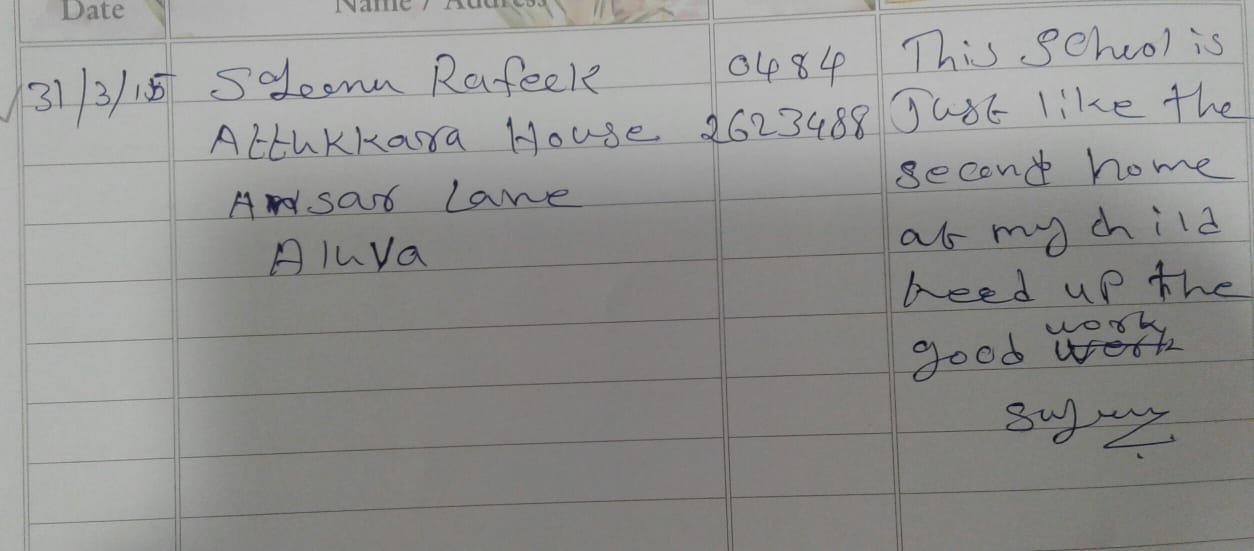 Date
Name / Address
31/3/15
Rafeek
Attukkara House
Ansar Lane
Aluva
0484
2623488
This School is
Just like the
second home
at my child
keed up the
good work